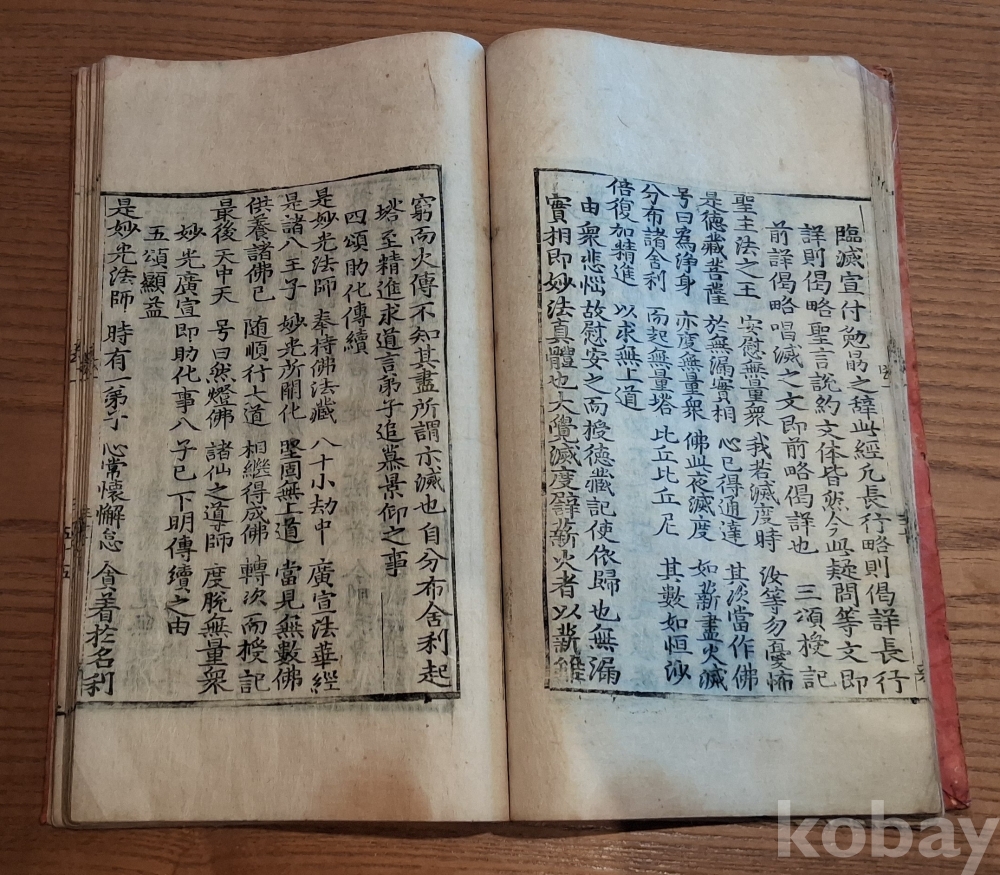 臨滅宣付勉勗之辭此經凡長行略則偈詳長行
詳則偈略聖言說約文体皆然今此疑問等文即
前詳偈略唱滅之文即前略偈詳也 三頌授記
聖主法之王 安慰無量衆 我若滅度時 汝等勿憂怖
是德藏菩薩 於無漏實相 心已得通達 其次當作佛
号曰爲淨身 亦度無量衆 佛此夜滅度 如薪盡火滅
分布諸舍利 而起無量塔 比丘比丘尼 其數如恒沙
倍復加精進 以求無上道
由衆悲惱故慰安之而授德藏記使依歸也無漏
實相即妙法真體也大覺滅度辟薪火者以薪雖
窮而火傳不知其盡所謂示滅也自分布舍利起
塔至精進求道言弟子追慕景仰之事
四頌助化傳續
是妙光法師 奉持佛法藏 八十小劫中 廣宣法華經
是諸八王子 妙光所開化 堅固無上道 當見無數佛
供養諸佛已 随順行大道 相繼得成佛 轉次而授記
最後天中天 号曰然燈佛 諸仙之導師 度脫無量衆
妙光廣宣即助化事八子已下明傳續之由
五頌顯益
是妙光法師 時有一弟子 心常懷懈怠 貪着於名利
kobay